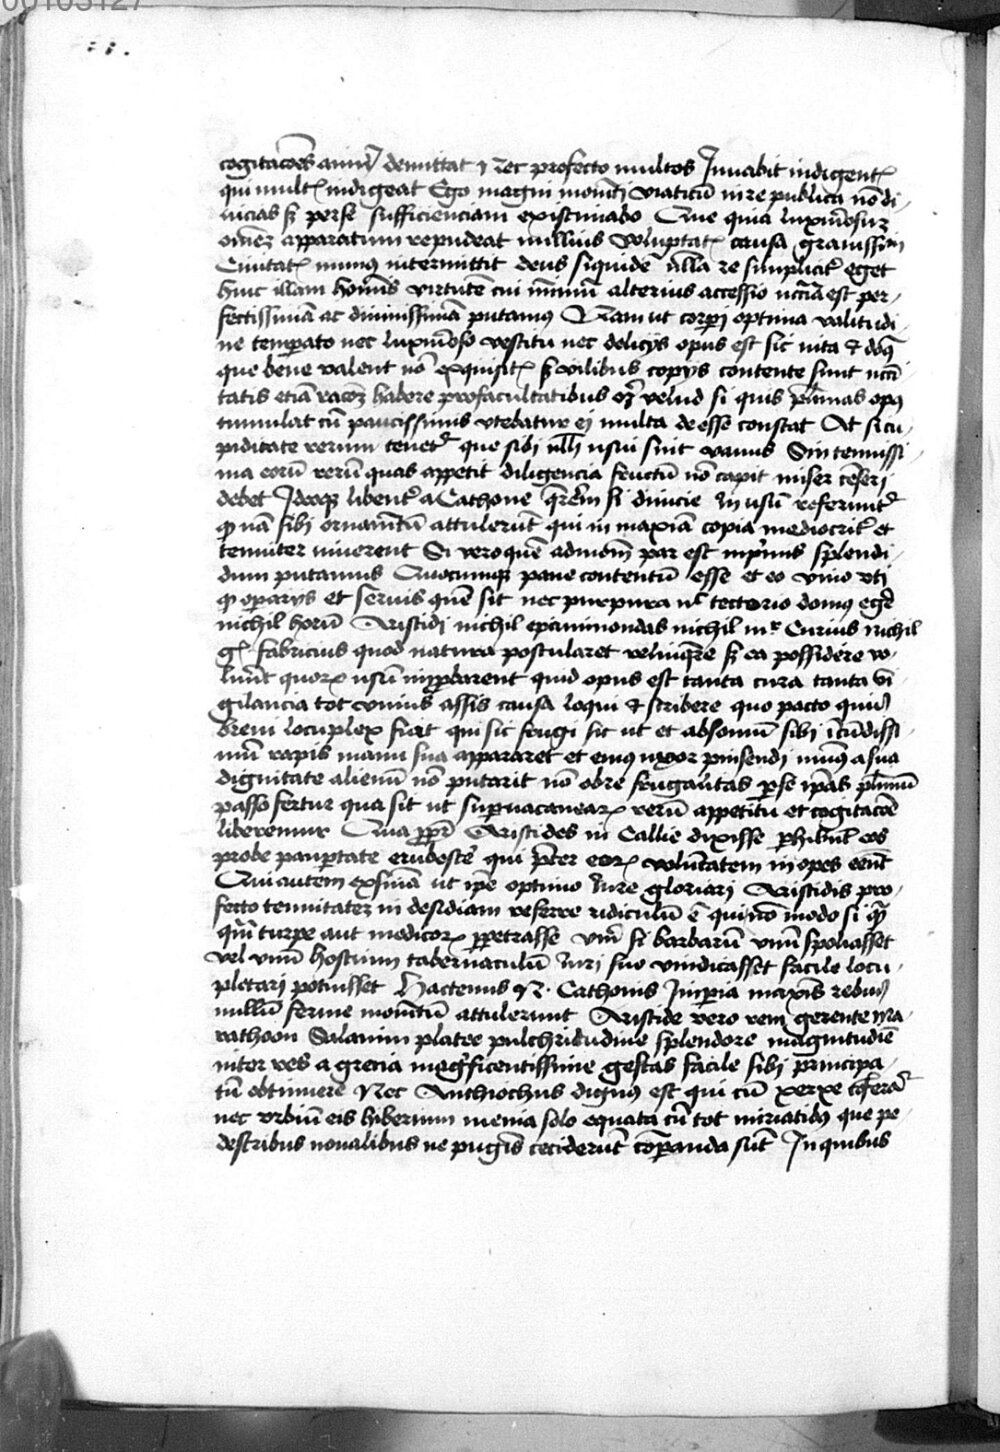 00105127
cogitacōes animꝰ demittat ⁊ Nec profecto multos Juvabit indigentꝭ
qui multꝭ indigeat Ego magni momēti viaticū in re publica nō di-
uicias sꝫ per se sufficienciam existimabo Que quia luxuriosuꝫ
omneꝫ apparatum repudeat nullius voluptatꝭ causa grauissim
Ciuitatꝭ munꝰ intermittit deus siquidē nulla re simplicitꝰ eget
huic illam hominis virtutē cui minimū alterius accessio nccīa est per-
fectissimā ac diuinissimā putamꝰ Nam ut corpori optima valitudi-
ne temperato nec luxurioso vestitu nec delicijs opus est sic vita ⁊ domꝰ
que bene valent nō exquisitꝭ sꝫ vilibus copijs contente sunt nccī
tatis etiā racōꝫ habere pro facultatibus oꝫ velud si quis plurimas opꝰ
tumulat cū paucissimis vtebatur ei multa deesse constat At si cu-
piditate rerum tenetꝰ que sibi nulli usui sint vanus Sin tenuissi-
ma eorū rerū quas appetit diligencia fructū nō capit miser cēseri
debet Idcoqꝫ libentꝰ a Cathone si diuicie in usū referuntꝰ
nā sibi ornamētū attulerūt qui in maxīa copia mediocritꝰ et
tenuiter viuerent Si vero quē admodū par est inprimis splendi-
dum putamus Quocumqꝫ pane contentū esse et eo vino vti
quo operarijs et seruis quē sit nec purpura nec tectorio domꝰ egē
nichil horū Aristidi nichil epaminondas nichil mꝰ Curius nichil
gꝭ fabricius quod natura postularet relinquere sꝫ ea possidere no-
luīt quorꝫ usū inprobarent quid opus est tanta cura tanta vi-
gilancia tot vnius assis causa loqui ⁊ scribere quo pacto quis
breui locuplex fiat qui sic frugi sit ut et absonium sibi iucūdissi
mū rapis manu sua appararet et eius uxor pinsendi munꝰ a sua
dignitate alienū nō putarit nō ob re frugalitas per se ipās plurimū
passo fertur qua sit ut superuacanearꝫ rerū appetitu et cogitacōe
liberemur Quapropter Aristides in Callie dixisse perhibent eos
probe paupertate erubescere qui preter eorꝫ voluntatem inopes eēnt
Qui autem ex sinā ut ipē optimo iure gloriari Aristidis pro-
fecto tenuitateꝫ in desidiam referre ridiculū ē qui nō modo si
turpe aut medicorꝫ perpetrasse si barbarū vnū spoliasset
vel vnū hostium tabernaculū iuri suo vindicasset facile locu-
pletari potuisset Hactenus Cathonis Imperia maxīs rebus
nullū ferme momētū attulerunt Aristide vero rem gerente Ma
rathoon Salamin platee pulchritudine splendore magnitudīe
inter res a grecia magnificentissime gestas facile sibi principa-
tū obtinuere Nec Anthiochus dignꝰ est qui cū xerxe cōferatꝰ
nec vrbiū eis hiberium menia solo equata cū tot miriatibꝰ que pe-
destribus noualibus ne pugnis ceciderūt cōparanda sūt In quibus